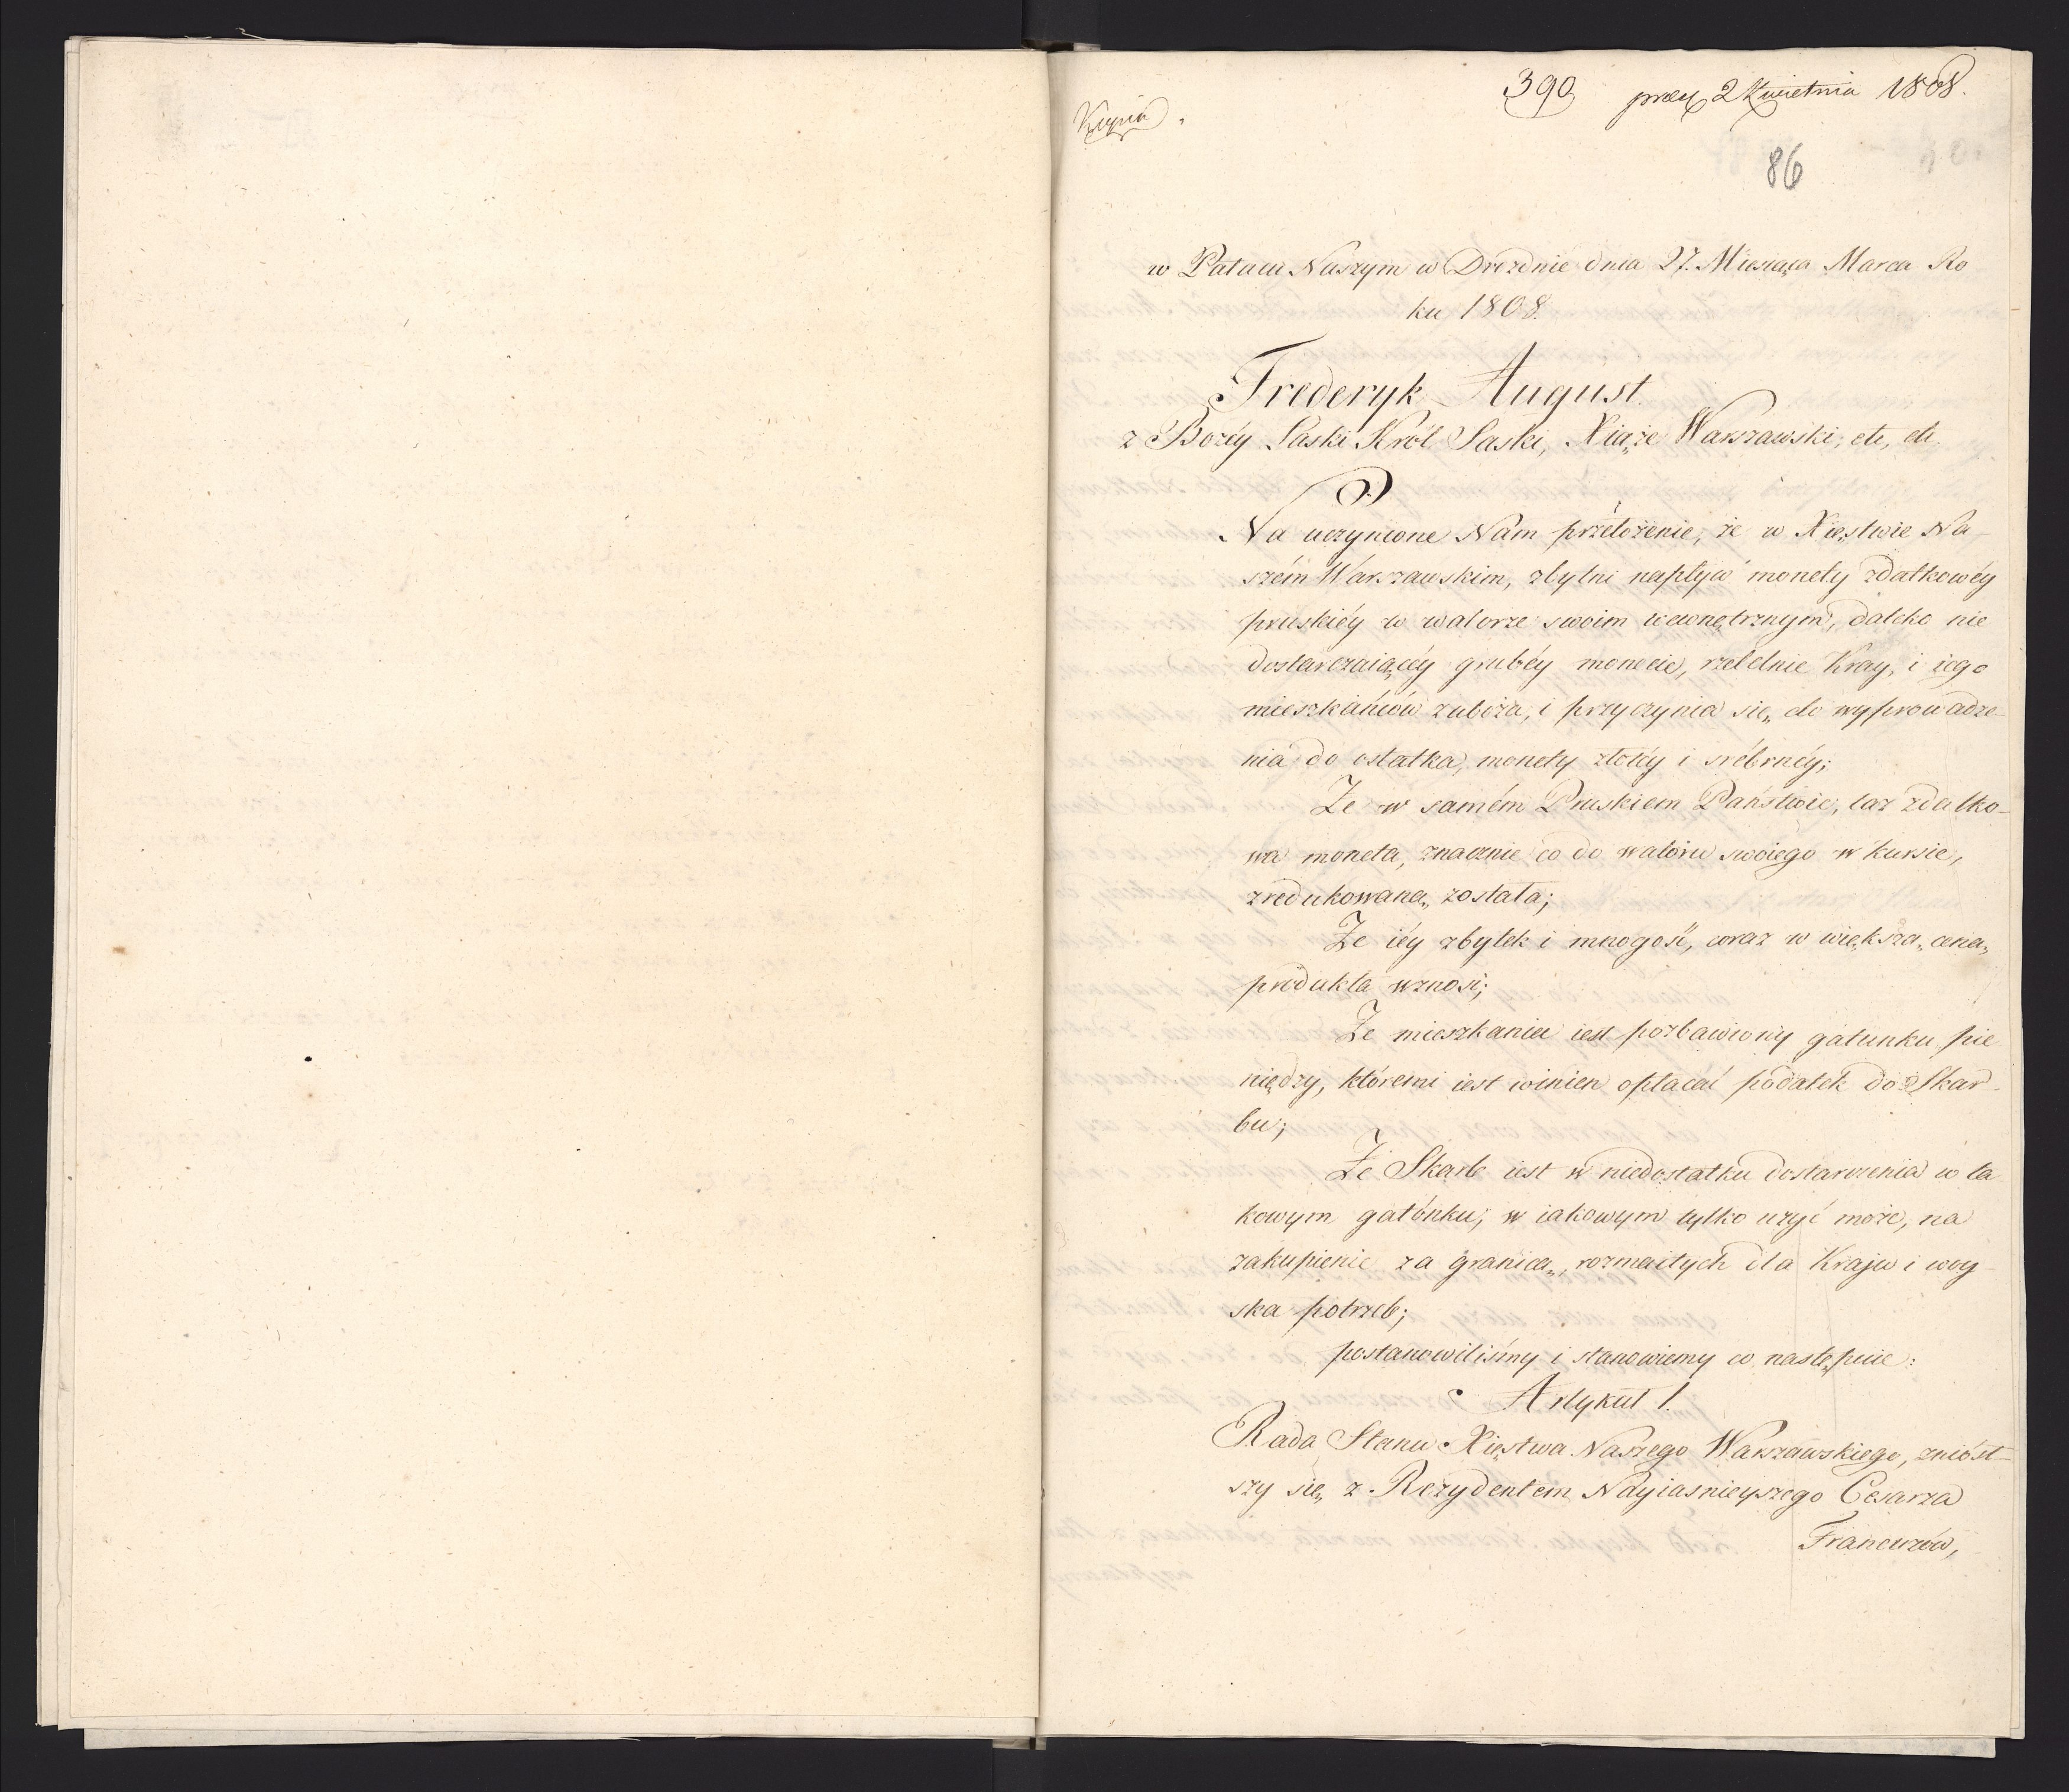 390 prez 2 Kwietnia 1808.
Kopia.
86
w Pałacu Naszym w Dreznie dnia 27. Miesiąca Marca Ro
ku 1808.
Frederyk August
z Bożéy Łaski Król Saski, Xiąże Warszawski, etc, etc.
Na uczynione Nam przełożenie, że w Xięstwie Na-
szém Warszawskim, zbytni napływ monety zdatkowéy
pruskiéy w walorze swoim wewnętrznym, daleko nie
dostarczaiącéy grubéy monecie, rzetelnie Kray, i iego
mieszkańców zuboża, i przyczynia się do wyprowadze-
nia do ostatka, monety złotéy i srébrnéy;
Że w samém Pruskiem Państwie, taż zdatko-
wa moneta, znacznie co do waloru swoiego w kursie,
zredukowaną została;
Że iéy zbytek i mnogość, coraz w większą cenę
produkta wznosi;
Że mieszkaniec iest pozbawiony gatunku pie
niędzy, któremi iest winien opłacać podatek do Skar-
bu;
Że Skarb iest w niedostatku dostarczenia w ta
kowym gatónku, w iakowym tylko użyć może, na
zakupienie za granicą, rozmaitych dla Kraju i woy-
ska potrzeb;
postanowiliśmy i stanowiemy co następuie:
Artykuł 1.
Rada Stanu Xięstwa Naszego Warszawskiego, zniósł-
szy się z Rezydentem Nayiasnieyszego Cesarza
Francuzów,